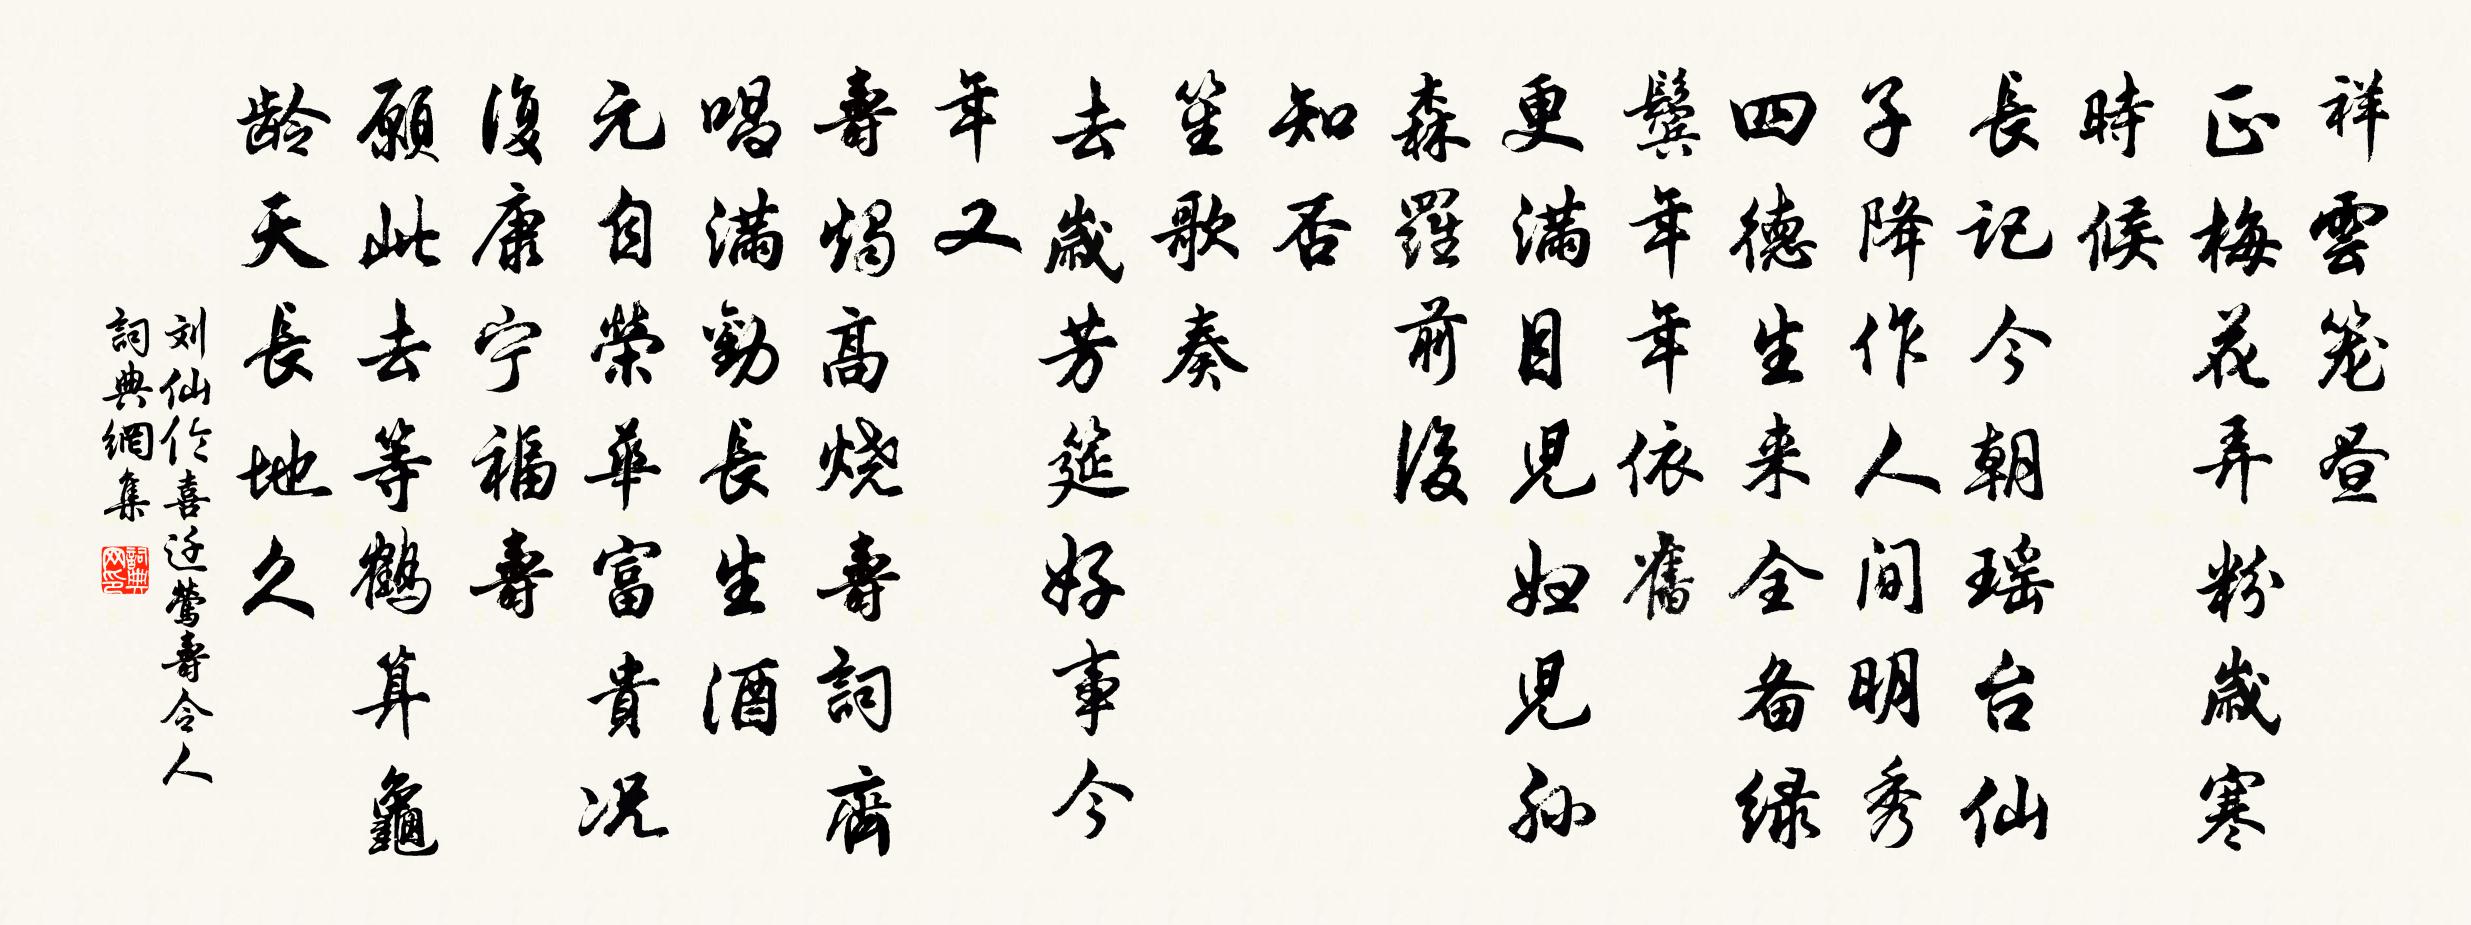 祥雲笼昼
正梅花弄粉歲寒
時候
長记今朝瑶台仙
子降作人间明秀
四德生来全备绿
鬓年年依舊
更满目児妇児孙
森羅前後
知否
笙歌奏
去歲芳筵好事今
年又
壽烛高烧壽詞齊
唱满勸長生酒
元自榮華富貴况
復康宁福壽
願此去等鹤算龜
龄天長地久
刘仙伦喜迁莺壽令人
詞典網集
詞典网印